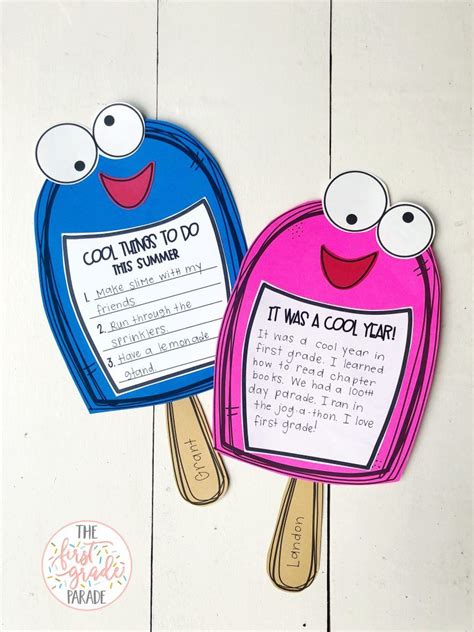 COOL THINGS TO DO
THIS SUMMER
1. Make slime with my
friends
2. Run through the
sprinklers.
3. Have a lemonade
stand
Grant
IT WAS A COOL YEAR!
It was a cool year in
first grade. I learned
how to read chapter
books. We had a 100th
day parade. I ran in
the jog-a-thon. I love
first grade!
Landon
THE
first
grade
PARADE